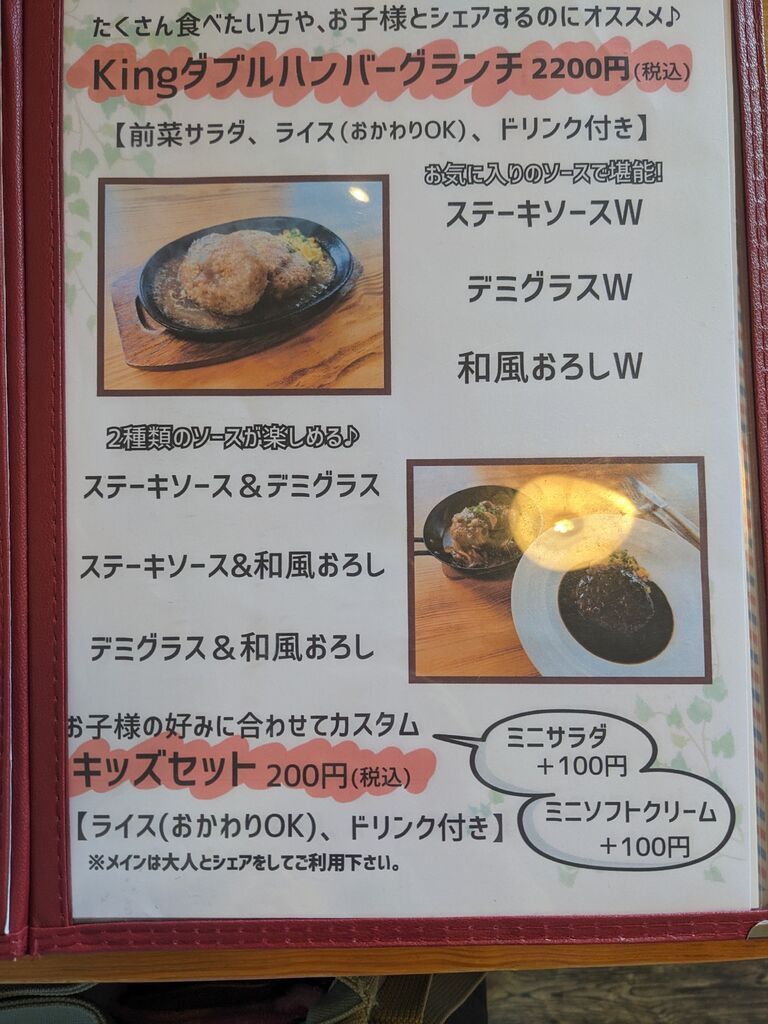 たくさん食べたい方や、お子様とシェアするのにオススメ♪
Kingダブルハンバーグランチ 2200円(税込)
【前菜サラダ、ライス(おかわりOK)、ドリンク付き】
お気に入りのソースで堪能!
ステーキソースW
デミグラスW
和風おろしW
2種類のソースが楽しめる♪
ステーキソース&デミグラス
ステーキソース&和風おろし
デミグラス&和風おろし
お子様の好みに合わせてカスタム
キッズセット 200円(税込)
【ライス(おかわりOK)、ドリンク付き】
※メインは大人とシェアをしてご利用下さい。
ミニサラダ
+100円
ミニソフトクリーム
+100円